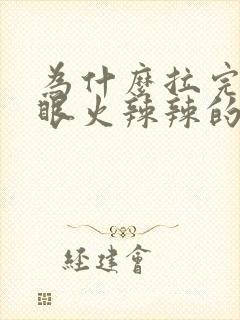 为什麼拉完
眼火辣辣的
经建會